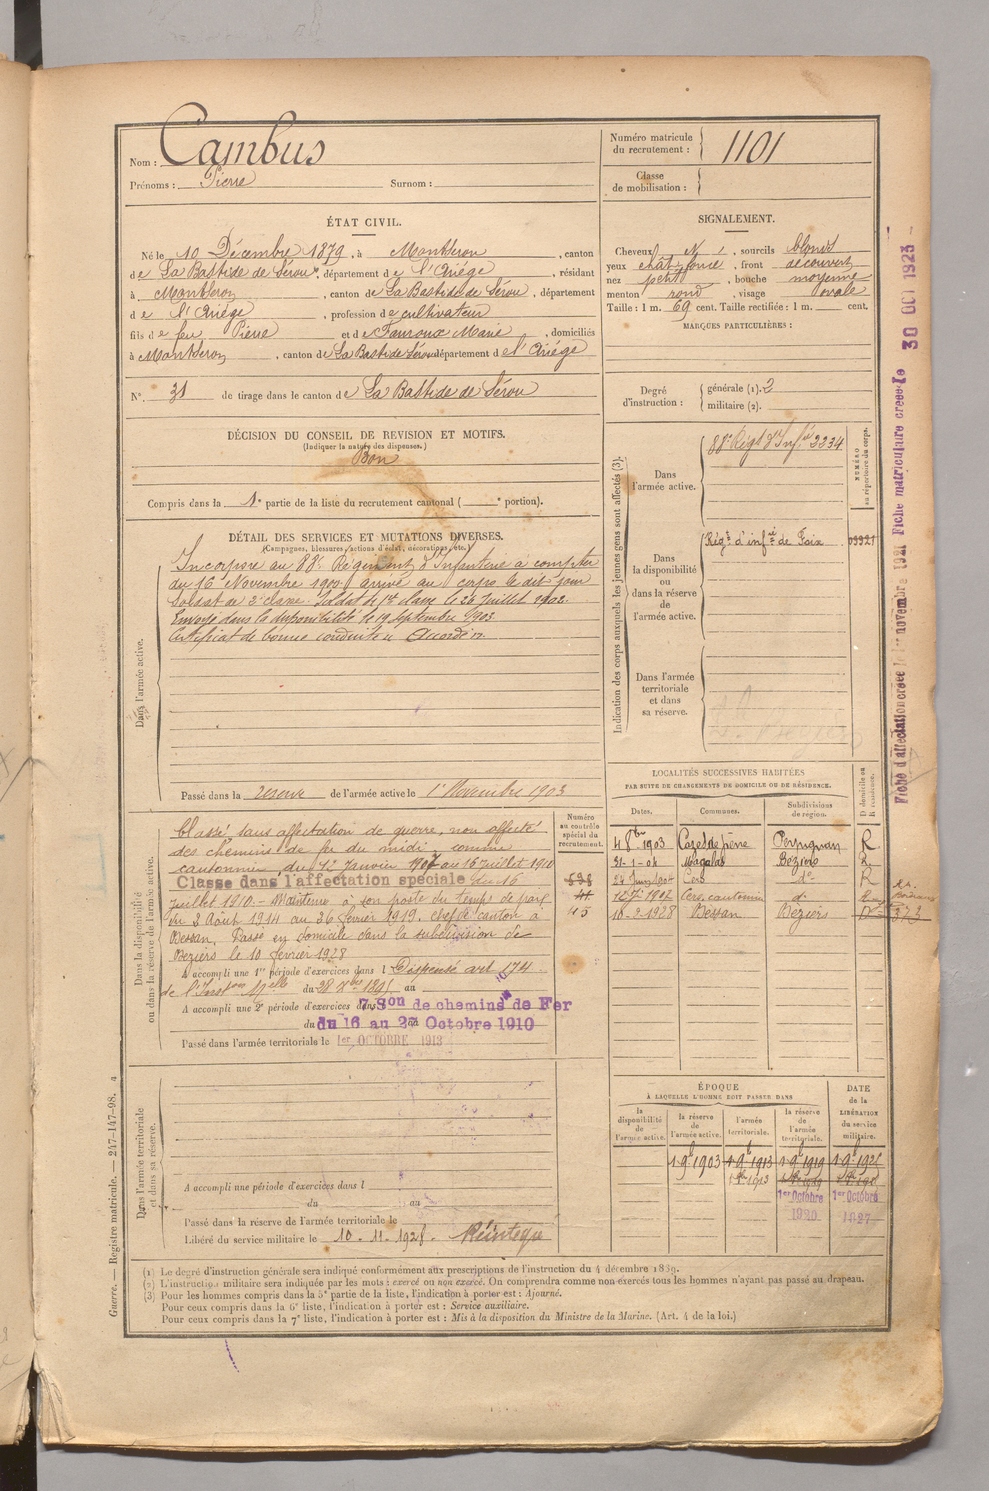 Nom : Cambus
Prénoms : Pierre Surnom :
Numéro matricule du recrutement : 1101
Classe de mobilisation :
ÉTAT CIVIL.
Né le 10 Décembre 1879, à Montseron, canton
de La Bastide de Sérou, département de l'Ariége, résidant
à Montseron, canton de La Bastide de Sérou, département
de l'Ariége, profession de cultivateur
fils de feu Pierre et de Fauroux Marie, domiciliés
à Montseron, canton de La Bastide Sérou département de l'Ariége
N° 31 de tirage dans le canton de La Bastide de Sérou
SIGNALEMENT.
Cheveux N , sourcils blonds
yeux chât. foncé, front découvert
nez petit, bouche moyenne
menton rond, visage ovale
Taille : 1 m. 69 cent. Taille rectifiée : 1 m. cent.
MARQUES PARTICULIÈRES :
Degré d'instruction : générale (1). 2
militaire (2).
DÉCISION DU CONSEIL DE REVISION ET MOTIFS.
(Indiquer la nature des dispenses.)
Bon
Compris dans la 1e partie de la liste du recrutement cantonal ( e portion).
DÉTAIL DES SERVICES ET MUTATIONS DIVERSES.
(Campagnes, blessures, actions d'éclat, décorations, etc.)
Dans l'armée active.
Incorporé au 88e Régiment d'Infanterie à compter
du 16 Novembre 1900 arrivé au corps le dit jour
Soldat de 2e classe. Soldat de 1re classe le 26 Juillet 1902.
Envoyé dans la disponibilité le 19 septembre 1903.
Certificat de bonne conduite Accordé.
Passé dans la réserve de l'armée active le 1er Novembre 1903
Indication des corps auxquels les jeunes gens sont affectés (3).
NUMÉRO au répertoire du corps.
Dans l'armée active.
88e Régt d'Infie 2334
Dans la disponibilité ou dans la réserve de l'armée active.
Régt d'infie de Foix 03321
Dans l'armée territoriale et dans sa réserve.
LOCALITÉS SUCCESSIVES HABITÉES
PAR SUITE DE CHANGEMENTS DE DOMICILE OU DE RÉSIDENCE.
Dates. Communes. Subdivisions de région. D domicile ou R résidence.
4 8bre 1903 Cases de pène Perpignan R
31-1-04 Magalas Béziers R
24 Juin 1904 Cers do R
1912 Cers, cantonnier do
10-2-1928 Bessan Béziers D
Dans la disponibilité ou dans la réserve de l'armée active.
Numéro au contrôle spécial du recrutement.
Classé sans affectation de guerre, non affecté
des chemins de fer du midi comme
cantonnier, du 1er Janvier 1907 au 16 Juillet 1910
Classé dans l'affectation spéciale du 16
juillet 1910. - Maintenu à son poste du temps de paix
du 3 Août 1914 au 26 février 1919. Chef de canton à
Bessan. Passé en domicile dans la subdivision de
Béziers le 10 février 1928
45
A accompli une 1re période d'exercices dans l Dispensé art 174
de l'Inston Mlle du 28 1895 au
A accompli une 2e période d'exercices dans 7 Son de chemins de Fer
du 16 au 27 Octobre 1910
Passé dans l'armée territoriale le 1er OCTOBRE 1913
Dans l'armée territoriale et dans sa réserve.
A accompli une période d'exercices dans l
du au
Passé dans la réserve de l'armée territoriale le
Libéré du service militaire le 10-11-1928. Réintégré
ÉPOQUE
À LAQUELLE L'HOMME DOIT PASSER DANS
la disponibilité de l'armée active. la réserve de l'armée active. l'armée territoriale. la réserve de l'armée territoriale.
DATE de la LIBÉRATION du service militaire.
1 9b 1903 1 9b 1913 1 9b 1919 1 9b 1925
1er Octobre 1920 1er Octobre 1927
(1) Le degré d'instruction générale sera indiqué conformément aux prescriptions de l'instruction du 4 décembre 1889.
(2) L'instruction militaire sera indiquée par les mots : exercé ou non exercé. On comprendra comme non exercés tous les hommes n'ayant pas passé au drapeau.
(3) Pour les hommes compris dans la 5e partie de la liste, l'indication à porter est : Ajourné.
Pour ceux compris dans la 6e liste, l'indication à porter est : Service auxiliaire.
Pour ceux compris dans la 7e liste, l'indication à porter est : Mis à la disposition du Ministre de la Marine. (Art. 4 de la loi.)
Guerre. — Registre matricule. — 247-147-98. 4
Fiche d'affectation créée le 1er novembre 1921 Fiche matriculaire créée le 30 OCT 1923